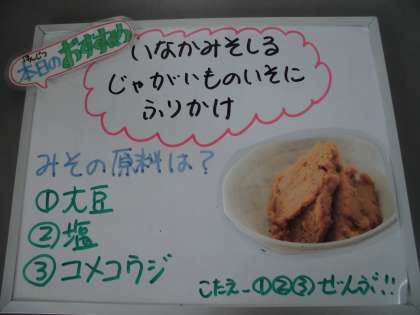 本日のおすすめ
いなかみそしる
じゃがいものいそに
ふりかけ
みその原料は?
①大豆
②塩
③コメコウジ
こたえー①②③ぜんぶ!!